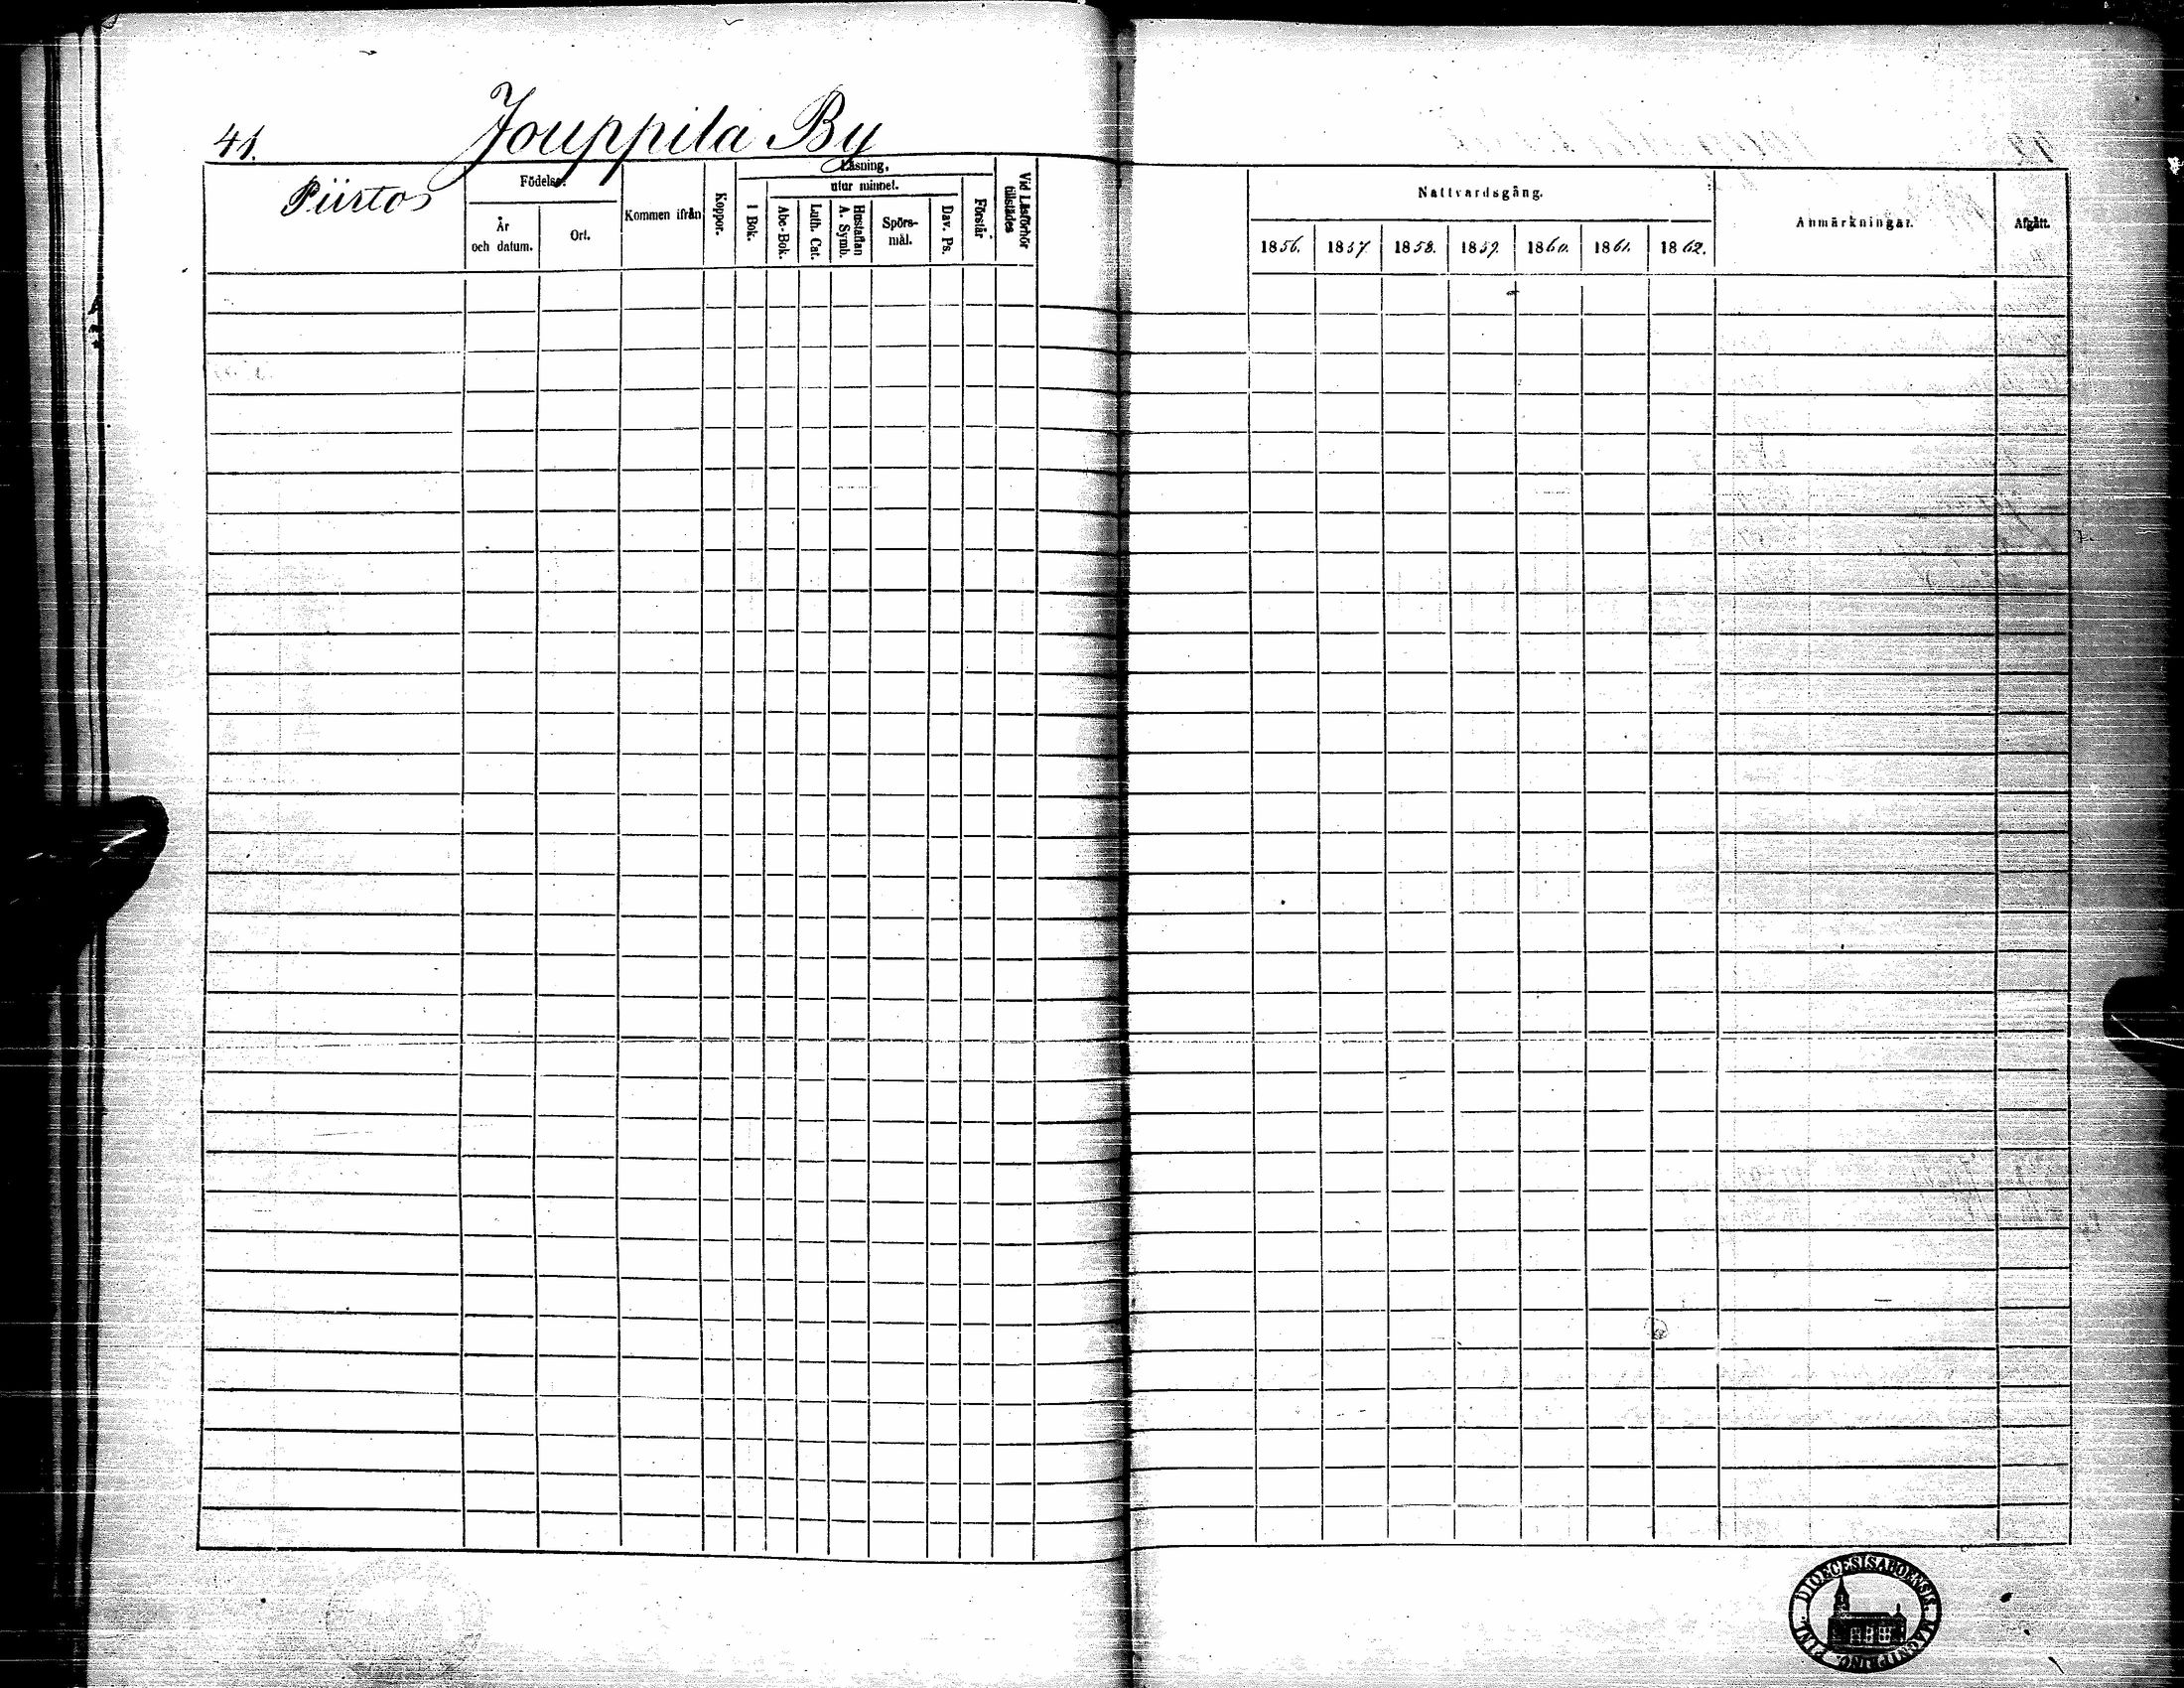 41. Jouppila By
Piirto
Födelse.
År
och datum.
Ort.
Kommen ifrån
Koppor.
Läsning,
I Bok.
utur minnet.
Abc-Bok.
Luth. Cat.
Hustaflan
A. Symb.
Spörs-
mål.
Dav. Ps.
Förstår
Vid Läsförhör
tillstädes
Nattvardsgång.
1856.
1857.
1858.
1859.
1860.
1861.
1862.
Anmärkningar.
Afgått.
DIOECESIS ABOENSIS. MAGNI PRINC. FINL.